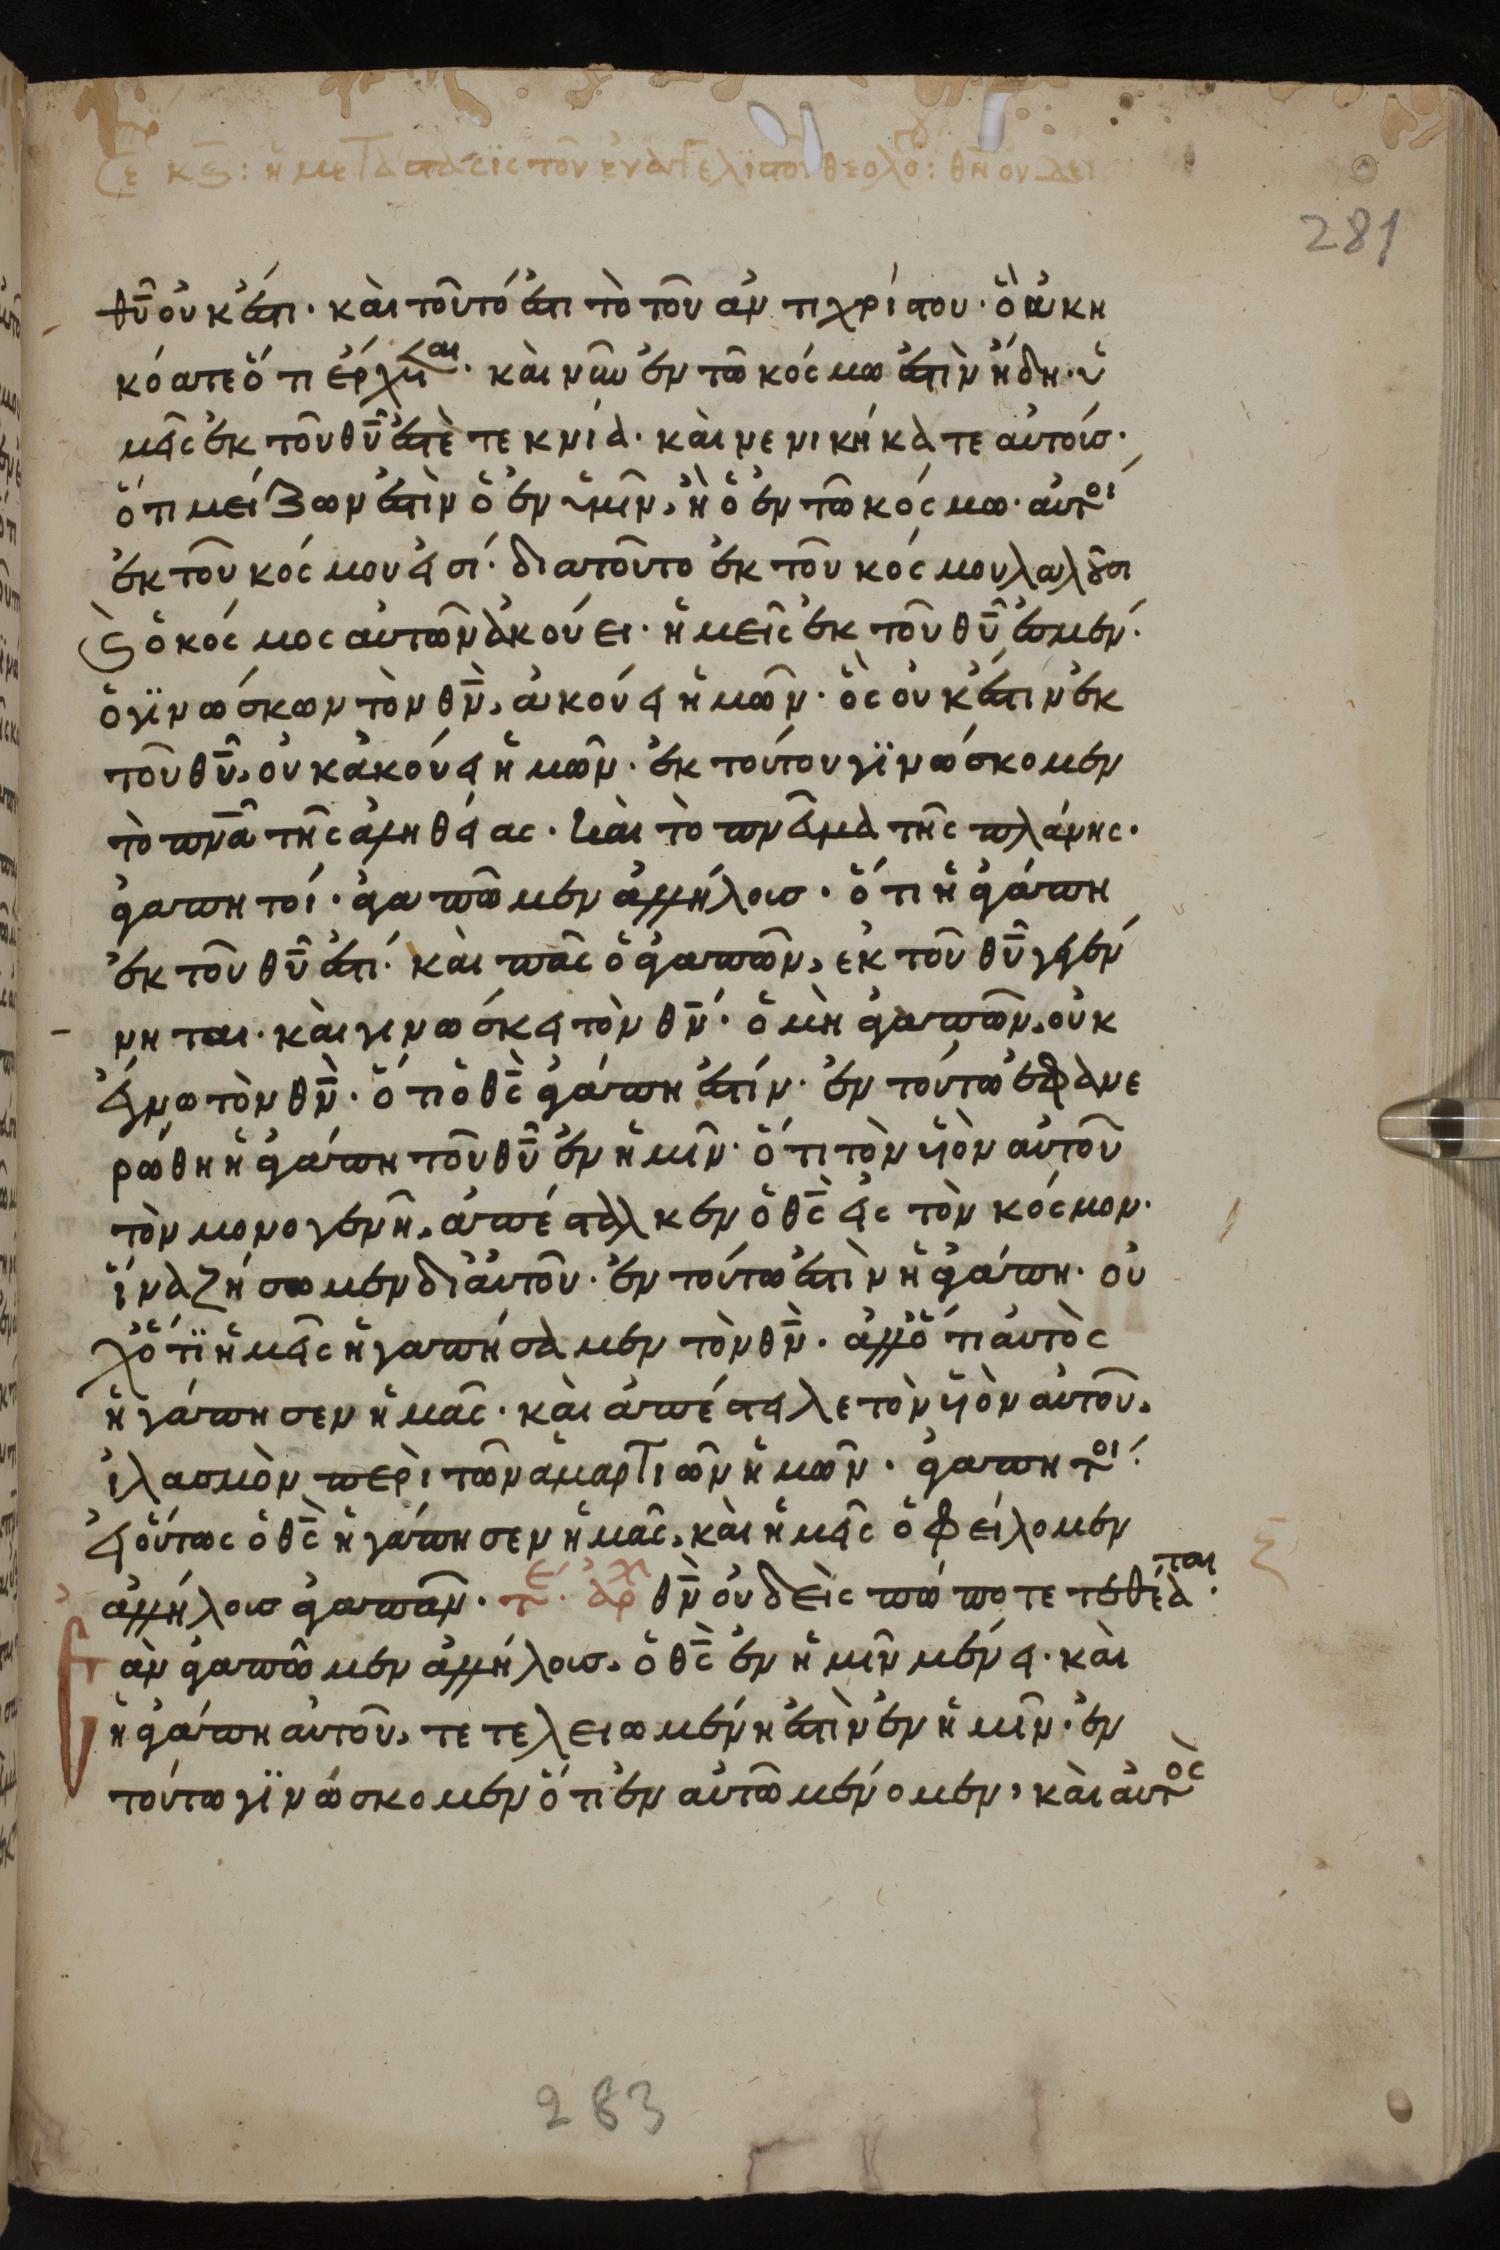 281
θῦ οὐκ ἔστι· καὶ τοῦτό ἐστι τὸ τοῦ ἀντιχρίστου· ὃ ἀκη
κόατε ὅτι ἔρχεται· καὶ νῦν ἐν τῶ κόσμω ἐστὶν ἤδη· ὑ
μεῖς ἐκ τοῦ θῦ ἐστὲ τεκνία· καὶ νενικήκατε αὐτοίσ·
ὅτι μείζων ἐστὶν ὁ ἐν ὑμῖν, ἢ ὁ ἐν τῶ κόσμω· αὐτοὶ
ἐκ τοῦ κόσμου εἰσί· διατοῦτο ἐκ τοῦ κόσμου λαλοῦσι
καὶ ὁ κόσμος αὐτῶν ἀκούει· ἡμεῖς ἐκ τοῦ θῦ ἐσμέν·
ὁ γϊνώσκων τὸν θν̄, ἀκούει ἡμῶν· ὃς οὐκ ἔστιν ἐκ
τοῦ θῦ, οὐκ ἀκούει ἡμῶν· ἐκ τούτου γϊνώσκομεν
τὸ πνᾶ τῆς ἀληθείας· καὶ τὸ πνεῦμα τῆς πλάνης·
ἀγαπητοί· ἀγαπῶμεν ἀλλήλοισ· ὅτι ἡ ἀγάπη
ἐκ τοῦ θῦ ἐστί· καὶ πᾶς ὁ ἀγαπῶν, ἐκ τοῦ θῦ γεγέν
νηται· καὶ γινώσκει τὸν θν̄· ὁ μὴ ἀγαπῶν, οὐκ
ἔγνω τὸν θν̄· ὅτι ὁ θς̄ ἀγάπη ἐστίν· ἐν τούτω ἐφανε
ρώθη ἡ ἀγάπη τοῦ θῦ ἐν ἡμῖν· ὅτι τὸν ὑϊὸν αὐτοῦ
τὸν μονογενῆ, ἀπέσταλκεν ὁ θς̄ εἰς τὸν κόσμον·
ἵνα ζήσωμεν δι αὐτοῦ· ἐν τούτω ἐστὶν ἡ ἀγάπη· οὐ
χ ὅτϊ ἡμεῖς ἠγαπήσαμεν τὸν θν̄· ἀλλ ὅτι αὐτὸς
ἠγάπησεν ἡμᾶς· καὶ ἀπέστειλε τὸν ὑϊὸν αὐτοῦ,
ἱλασμὸν περὶ τῶν ἁμαρτιῶν ἡμῶν· ἀγαπητοί·
εἰ οὕτως ὁ θς̄ ἠγάπησεν ἡμᾶς, καὶ ἡμεῖς ὀφείλομεν
ἀλλήλοισ ἀγαπᾶν· τέ· ἀρχ θν̄ οὐδεὶς πώποτε τεθέαται·
ἐὰν ἀγαπῶμεν ἀλλήλοισ, ὁ θς̄ ἐν ἡμῖν μένει· καὶ
ἡ ἀγάπη αὐτοῦ, τετελειωμένη ἐστὶν ἐν ἡμῖν· ἐν
τούτω γϊνώσκομεν ὅτι ἐν αὐτῶ μένομεν, καὶ αὐτὸς
283